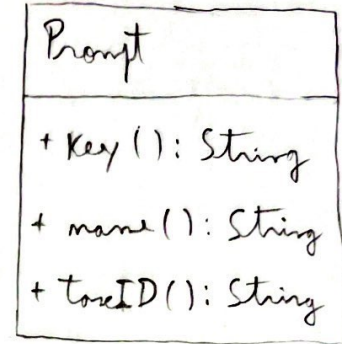 Prompt
+ key(): String
+ name(): String
+ toneID(): String